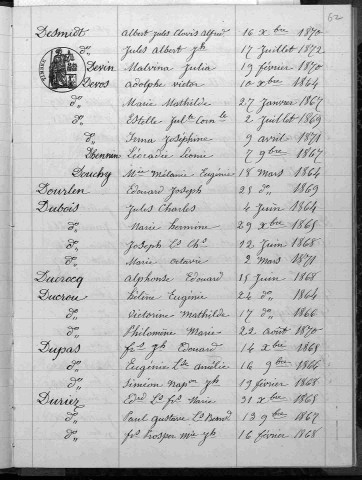 62
Desmidt Albert Jules Clovis Alfred 16 Xbre 1870
do Jules Albert Jh 17 Juillet 1872
Devin Malvina Julia 19 février 1870
Devos Adolphe Victor 10 Xbre 1864
do Marie Mathilde 27 Janvier 1867
do Estelle Julte Corn le 2 Juillet 1869
do Irma Joséphine 9 avril 1871
Dhennin Léocadie Léonie 7 9bre 1867
Douchy Mie Mélanie Eugénie 18 Mars 1864
Dourlen Edouard Joseph 25 do 1869
Dubois Jules Charles 4 Juin 1864
do Marie Hermine 29 Xbre 1865
do Joseph Ls Chs 12 Juin 1868
do Marie Octavie 2 Mars 1871
Ducrocq Alphonse Edouard 15 Juin 1868
Ducrou Hélène Eugénie 24 do 1864
do Victorine Mathilde 17 do 1866
do Philomène Marie 22 Août 1870
Dupas frs Jh Edouard 14 Xbre 1865
do Eugénie Lse Amélie 16 9bre 1866
do Siméon Napon Jh 19 février 1868
Duriez Edrd Ls frs Marie 31 Xbre 1865
do Paul Gustave Ls 13 9bre 1867
do frs Prosper Mie Jh 16 février 1868